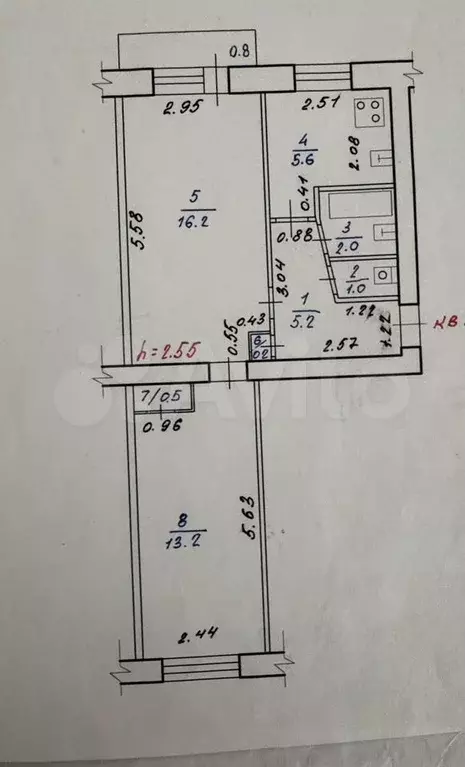 0.8
2.95
2.51
4
5.6
2.08
5
16.2
5.58
0.41
0.88
3
2.0
2
1.0
3.04
1
5.2
1.22
1.22
2.57
КВ.
0.43
0.55
6
0.2
h=2.55
7/0.5
0.96
8
13.2
5.63
2.44
Avito